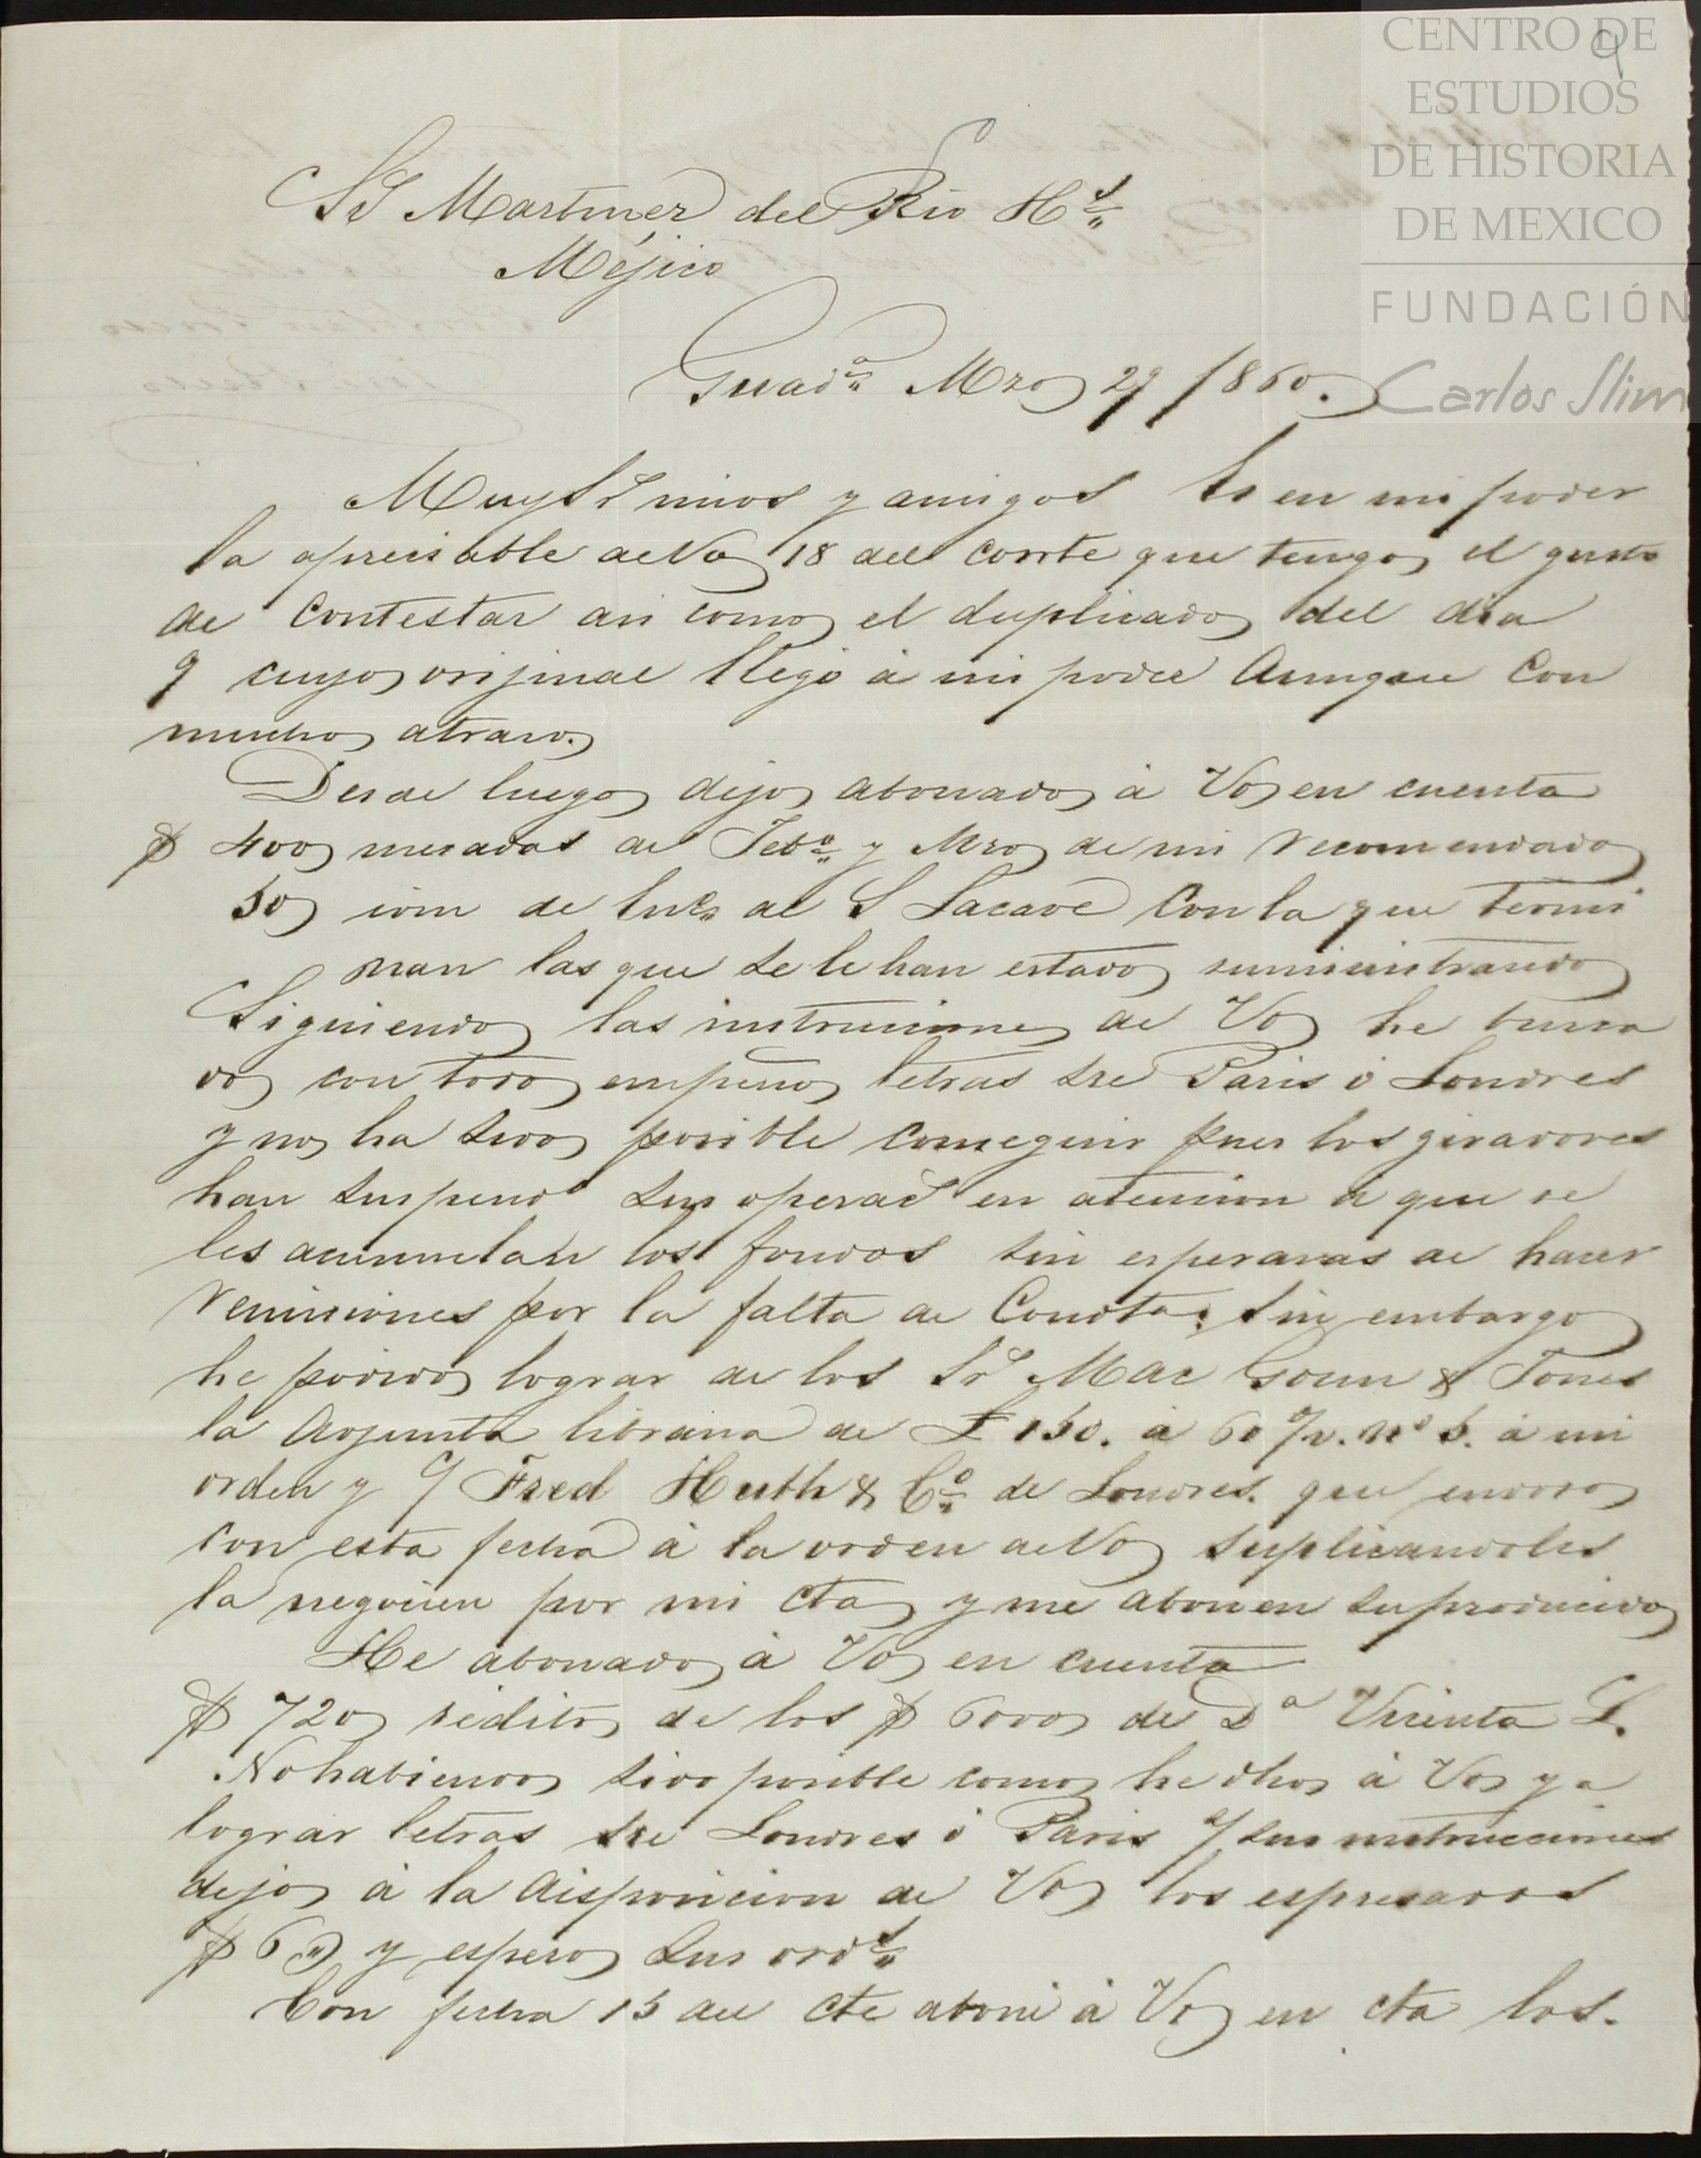 CENTRO DE
ESTUDIOS
DE HISTORIA
DE MEXICO
FUNDACIÓN
Carlos Slim
9
SS Martinez del Rio Hs
Méjico
Guada Mzo 29 1860.
Muy Sr mios y amigos Es en mi poder
la apreciable de Vs 18 del corrte que tengo el gusto
de contestar asi como el duplicado del dia
9 cuyo orijinal llegó á mi poder aunque con
mucho atraso.
Desde luego dejo abonado á Vs en cuenta
$ 400 mesadas de Febo y Mzo de mi recomendado
50 idem de la Sr Lacave con la que termi
nan las que se le han estado suministrando
Siguiendo las instrucciones de Vs he busca
do con todo empeño letras sre Paris ó Londres
y no ha sido posible conseguir pues los giradores
han suspendo sus operacs en atencion á que se
les acumulan los fondos sin esperanzas de hacer
remisiones por la falta de Condta; sin embargo
he podido lograr de los Sr Mac Goun & Tones
la adjunta libranza de £ 150. á 60 d/v. No 5. á mi
orden y c/ Fred Huth & Co de Londres. que endoso
con esta fecha á la orden de Vs suplicandoles
la negocien por mi cta y me abonen su producido
He abonado á Vs en cuenta
$ 720 réditos de los $ 6000 de Da Vicenta L.
No habiendo sido posible como he dho á Vs ya
lograr letras sre Londres ó Paris s/ sus instrucciones
dejo á la disposicion de Vs los espresados
$ 6 y espero sus ords
Con fecha 15 del cte aboné á Vs en cta los.